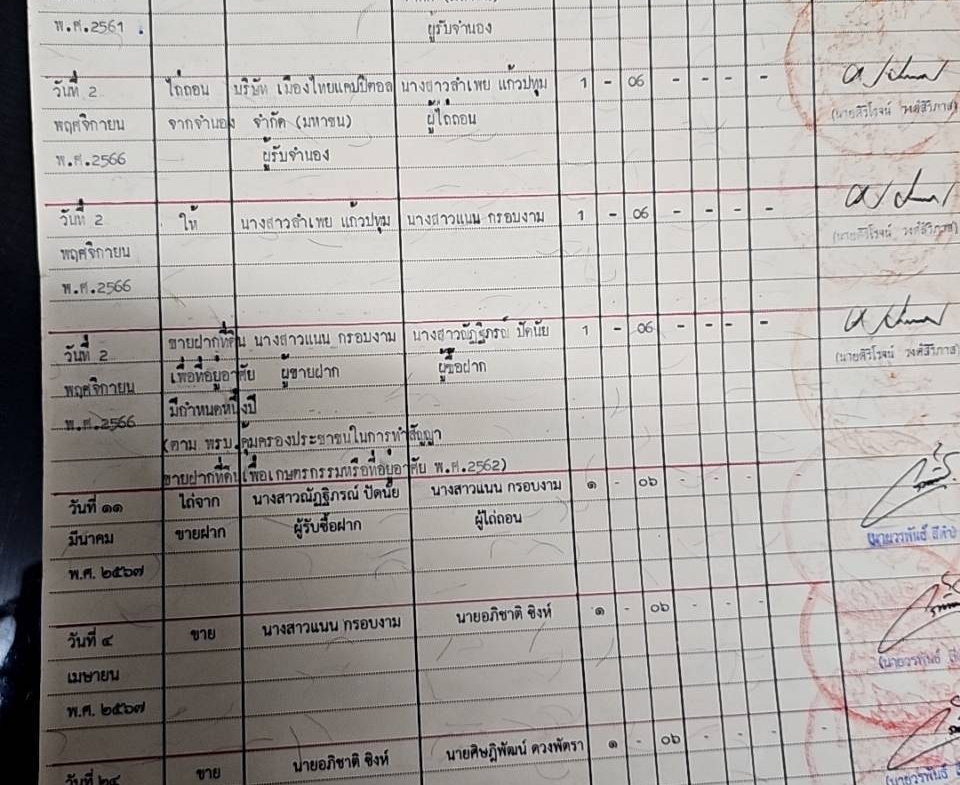 พ.ศ.2561 ผู้รับจำนอง
วันที่ 2 ไถ่ถอน บริษัท เมืองไทยแคปปิตอล นางสาวลำเพย แก้วปทุม 1 - 06 - - - -
พฤศจิกายน จากจำนอง จำกัด (มหาชน) ผู้ไถ่ถอน (นายศิริโรจน์ วงศ์สิริภาส)
พ.ศ.2566 ผู้รับจำนอง
วันที่ 2 ให้ นางสาวลำเพย แก้วปทุม นางสาวแนน กรอบงาม 1 - 06 - - - -
พฤศจิกายน (นายศิริโรจน์ วงศ์สิริภาส)
พ.ศ.2566
วันที่ 2 ขายฝากที่ดิน นางสาวแนน กรอบงาม นางสาวณัฏฐิภรณ์ ปัดนัย 1 - 06 - - - -
พฤศจิกายน เพื่อที่อยู่อาศัย ผู้ขายฝาก ผู้ซื้อฝาก (นายศิริโรจน์ วงศ์สิริภาส)
พ.ศ.2566 มีกำหนดหนึ่งปี
(ตาม พรบ.คุ้มครองประชาชนในการทำสัญญา
ขายฝากที่ดินเพื่อเกษตรกรรมหรือที่อยู่อาศัย พ.ศ.2562)
วันที่ ๑๑ ไถ่จาก นางสาวณัฏฐิภรณ์ ปัดนัย นางสาวแนน กรอบงาม ๑ - ๐๖ - - - -
มีนาคม ขายฝาก ผู้รับซื้อฝาก ผู้ไถ่ถอน (นายวรพันธ์
พ.ศ. ๒๕๖๗
วันที่ ๔ ขาย นางสาวแนน กรอบงาม นายอภิชาติ ซิงห์ ๑ - ๐๖ - - - -
เมษายน (นายวรพันธ์
พ.ศ. ๒๕๖๗
วันที่ ๒๔ ขาย นายอภิชาติ ซิงห์ นายศิษฎิพัฒน์ ดวงพัตรา ๑ - ๐๖ - - - -
(นายวรพันธ์